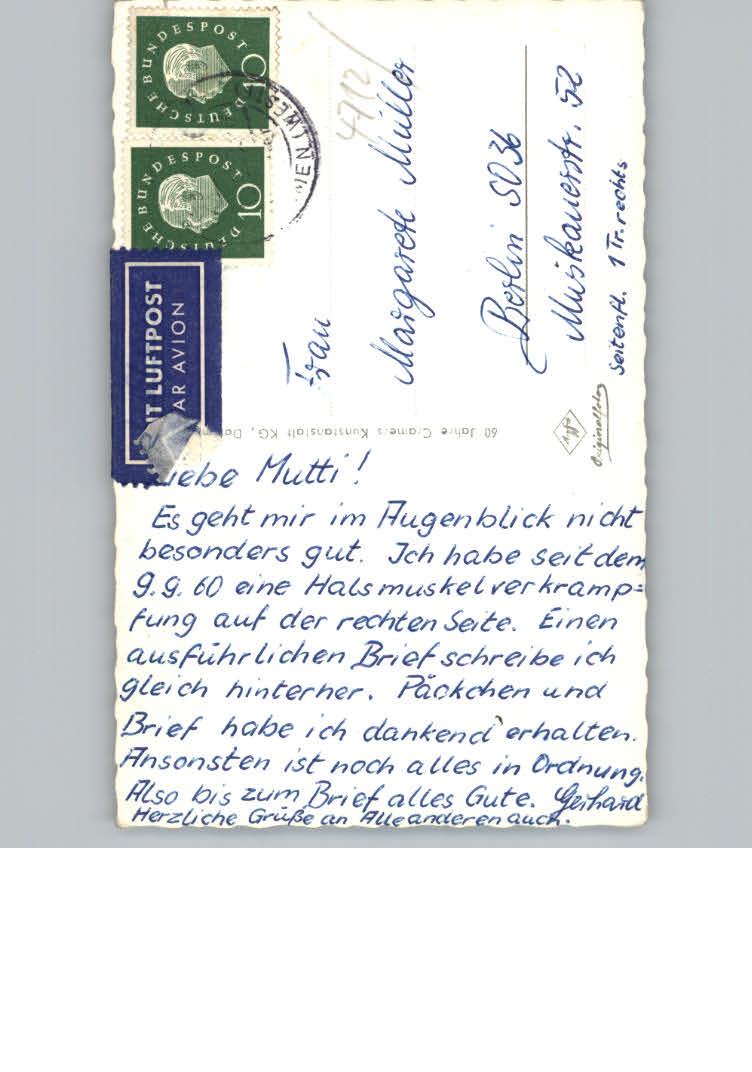 DEUTSCHE BUNDESPOST
10
DEUTSCHE BUNDESPOST
10
LUFTPOST
AR AVION
4712
Frau
Margarete Müller
Berlin SO36
Muskauerstr. 52
Seitenfl. 1 Tr. rechts
60 Jahre Cramers Kunstanstalt KG,
Agfa
Originalfoto
Liebe Mutti!
Es geht mir im Augenblick nicht
besonders gut. Ich habe seit dem
9.9.60 eine Halsmuskelverkramp=
fung auf der rechten Seite. Einen
ausführlichen Brief schreibe ich
gleich hinterher. Päckchen und
Brief habe ich dankend erhalten.
Ansonsten ist noch alles in Ordnung.
Also bis zum Brief alles Gute. Gerhard
Herzliche Grüße an Alle anderen auch.